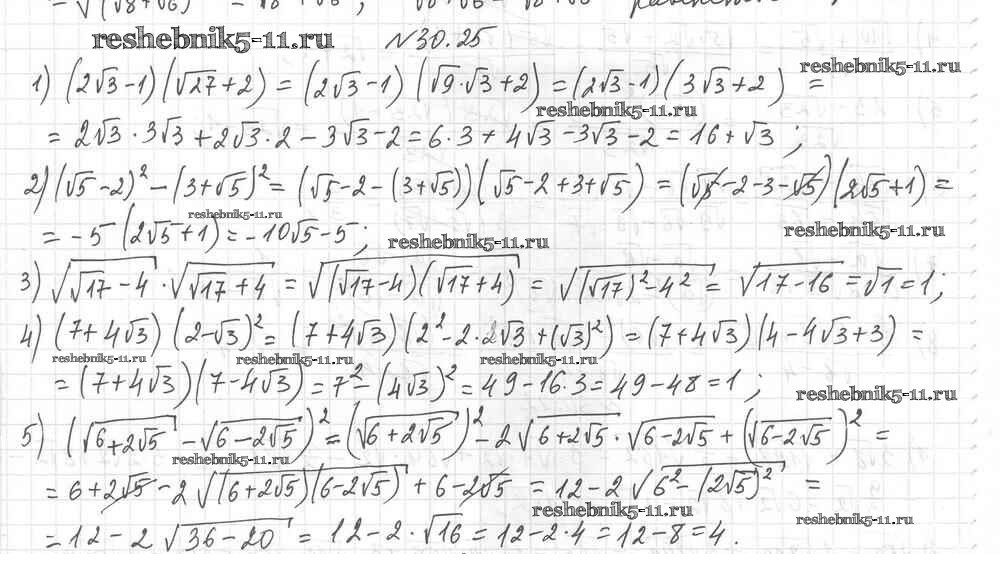 = √(√8+√6)
reshebnik5-11.ru №30.25
reshebnik5-11.ru
1) (2√3-1)(√27+2) = (2√3-1)(√9·√3+2) = (2√3-1)(3√3+2) =
reshebnik5-11.ru
= 2√3·3√3+2√3·2-3√3-2=6·3+4√3-3√3-2=16+√3;
2) (√5-2)²-(3+√5)²=(√5-2-(3+√5))(√5-2+3+√5) = (√5-2-3-√5)(2√5+1)=
reshebnik5-11.ru
= -5(2√5+1)=-10√5-5; reshebnik5-11.ru reshebnik5-11.ru
3) √(√17-4)·√(√17+4) = √((√17-4)(√17+4)) = √((√17)²-4²) = √(17-16)=√1=1;
4) (7+4√3)(2-√3)²=(7+4√3)(2²-2·2√3+(√3)²)=(7+4√3)(4-4√3+3)=
reshebnik5-11.ru reshebnik5-11.ru reshebnik5-11.ru
= (7+4√3)(7-4√3)=7²-(4√3)²=49-16·3=49-48=1; reshebnik5-11.ru
5) (√(6+2√5)-√(6-2√5))²=(√(6+2√5))²-2√(6+2√5)·√(6-2√5)+(√(6-2√5))²=
reshebnik5-11.ru
= 6+2√5-2√((6+2√5)(6-2√5))+6-2√5 = 12-2√(6²-(2√5)²) =
reshebnik5-11.ru reshebnik5-11.ru
=12-2√(36-20) = 12-2·√16=12-2·4=12-8=4.